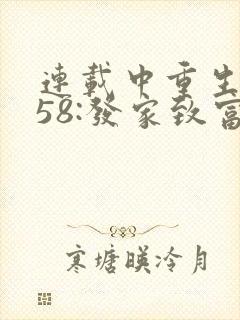 連載中重生
58:發家致富
寒塘暎冷月